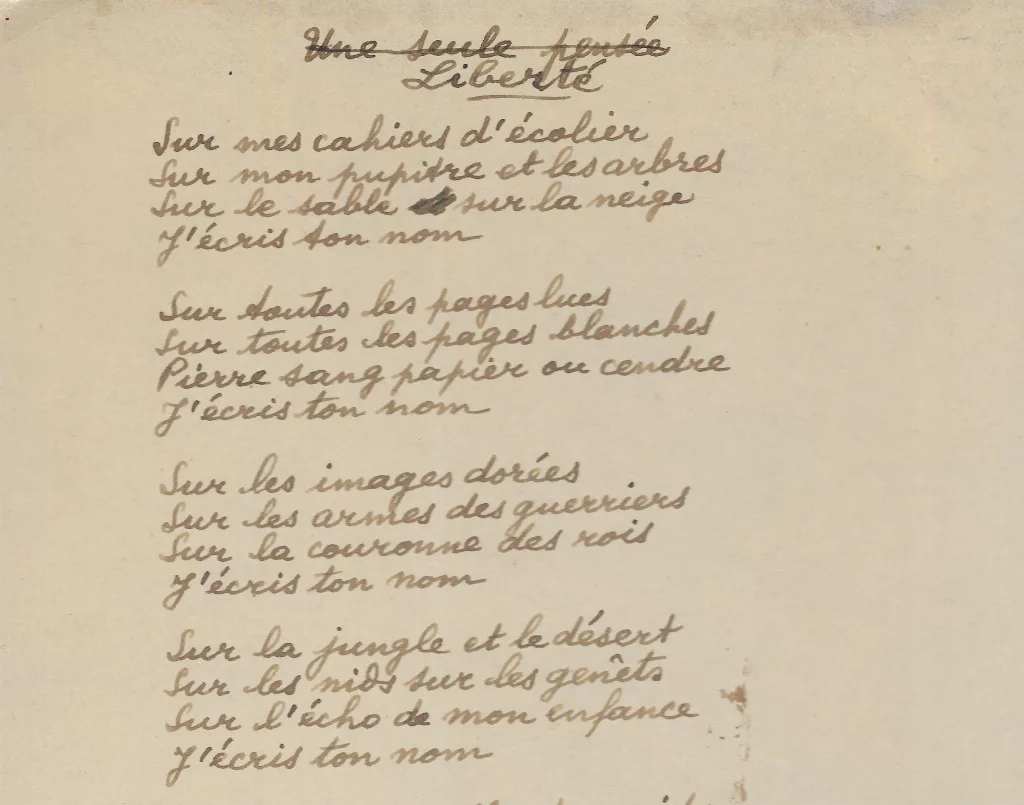 Une seule pensée
Liberté
Sur mes cahiers d'écolier
Sur mon pupitre et les arbres
Sur le sable sur la neige
J'écris ton nom
Sur toutes les pages lues
Sur toutes les pages blanches
Pierre sang papier ou cendre
J'écris ton nom
Sur les images dorées
Sur les armes des guerriers
Sur la couronne des rois
J'écris ton nom
Sur la jungle et le désert
Sur les nids sur les genêts
Sur l'écho de mon enfance
J'écris ton nom